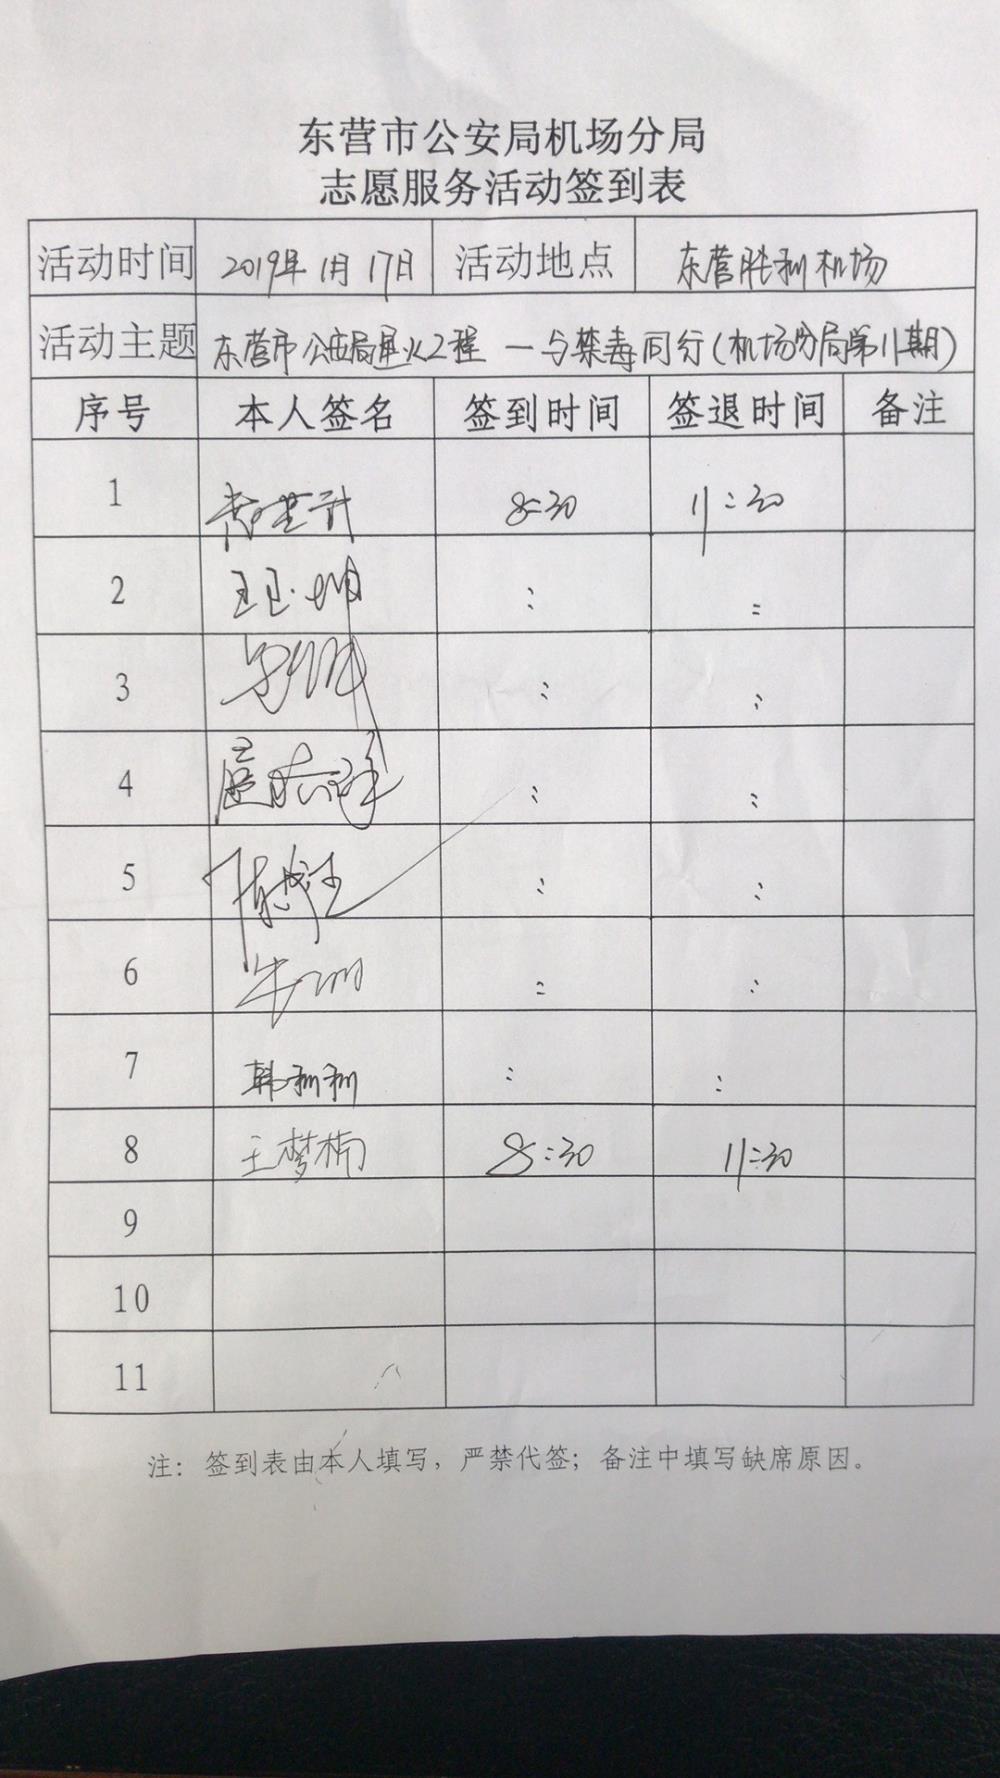 东营市公安局机场分局
志愿服务活动签到表
活动时间 2019年1月17日 活动地点 东营胜利机场
活动主题 东营市公安局星火工程 — 与禁毒同行(机场分局第11期)
序号 本人签名 签到时间 签退时间 备注
1 8:30 11:30
2 : :
3 : :
4 : :
5 : :
6 : :
7 韩利利 : :
8 王梦楠 8:30 11:30
9
10
11
注：签到表由本人填写，严禁代签；备注中填写缺席原因。